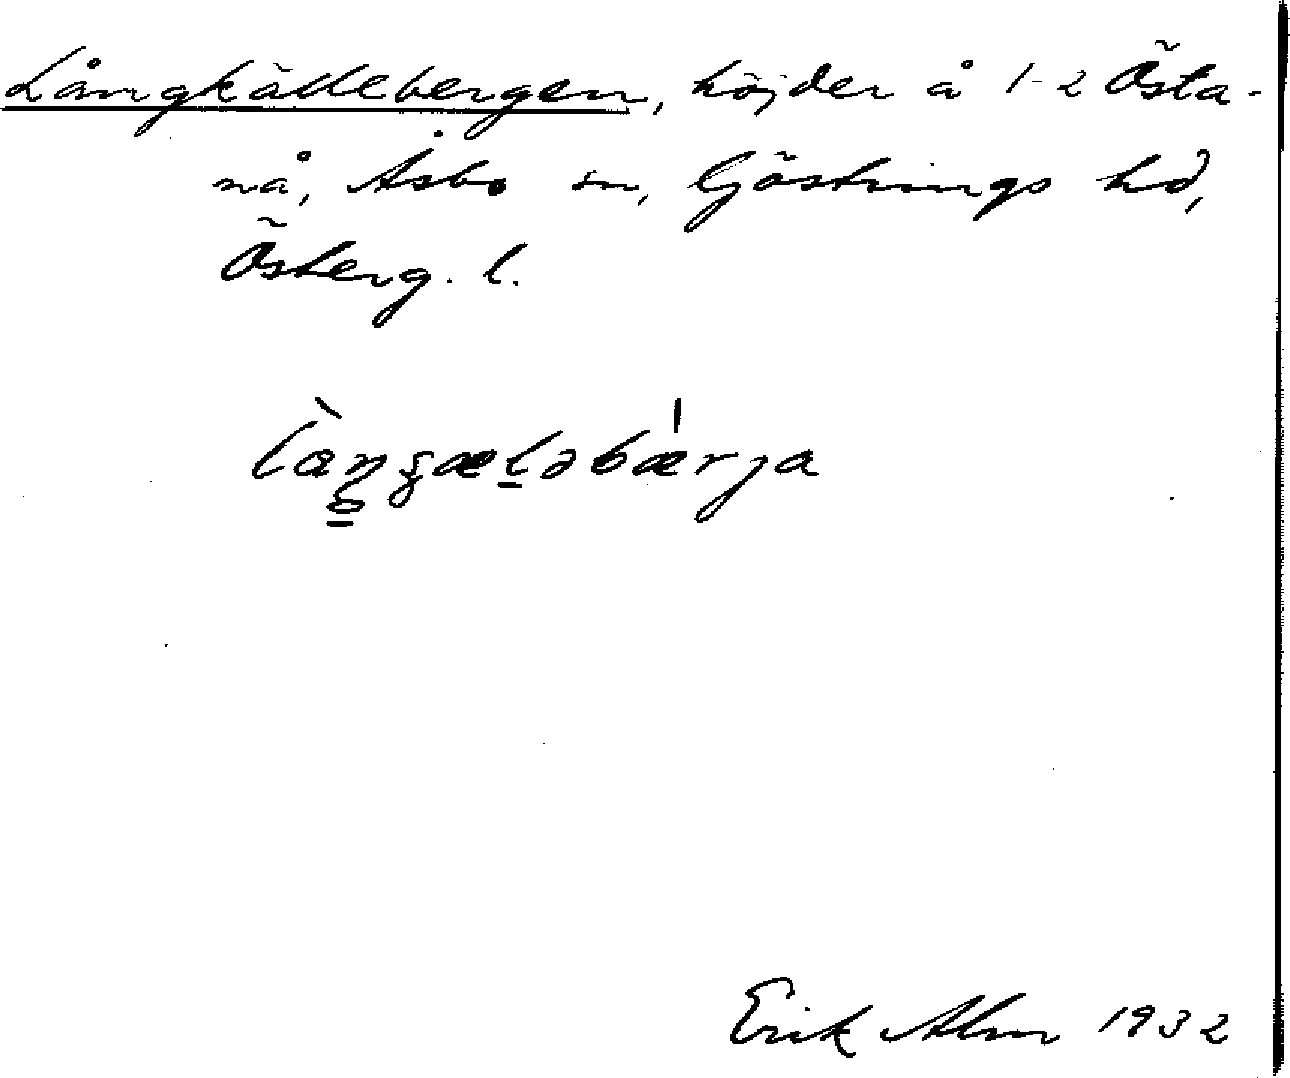 Långkällebergen, höjder å 1-2 Östa-
nå, Åsbo sn, Göstrings hd,
Österg. l.
Erik Alm 1932